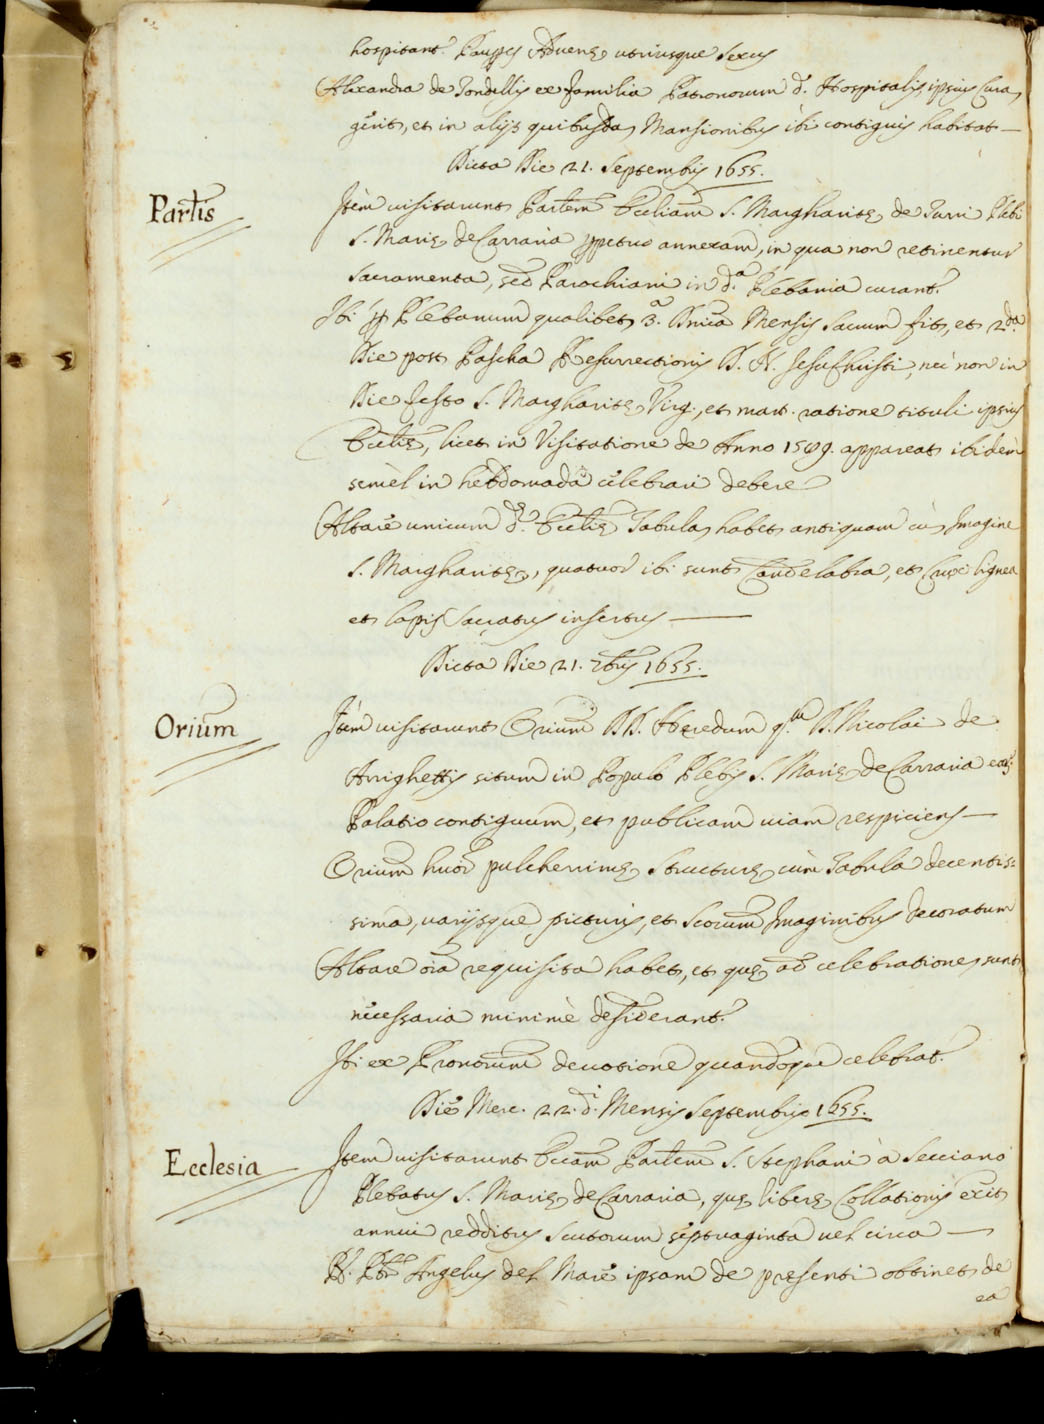 hospitant.r Paup.es Advenę utriusque sexus
Alexandra de Tondellis ex familia Patronorum d.i Hospitalis ipsius Curam
gerit, et in alijs quibusdā Mansionibus ibi contiguis habitat —
Dicta Die 21. Septembris 1655.
Partis
Item visitarunt Partem Eccliam S. Margharitę de Turri Plebi
S. Marię de Carraria ppetuo annexam, in qua non retinentur
Sacramenta, sed Parochiani in d.a Plebania curant.r
Ibi p Plebanum qualibet 3.a Dnica Mensis Sacrum fit, et 2.da
Die post Pascha Resurrectionis D. N. Jesu Christi, nec non in
Die festo S. Margharitę Virg., et mart. ratione tituli ipsius
Ecclię, licet in Visitatione de Anno 1599. appareat ibidem
semel in hebdomada celebrari debere
Altare unicum d.ę Ecclię Tabulam habet antiquam cū Imagine
S. Margharitę, quatuor ibi sunt Candelabra, et Crux lignea
et lapis Sacratus insertus —
Dicta Die 21. 7bris 1655.
Orium
Item visitarunt Orium DD. Heredum q.m D. Nicolai de
Arrighettis situm in Populo Plebis S. Marię de Carraria eor
Palatio contiguum, et publicam viam respiciens —
Orium huor pulcherrimę structurę cum Tabula decentis=
sima, varijsque picturis, et Scorum Imaginibus decoratum
Altare oia requisita habet, et quę ad celebrationem sunt
necessaria minimè desiderant.r
Ibi ex Pronorum devotione quandoque celebrat.r
Die Merc. 22. d.i Mensis Septembris 1655.
Ecclesia
Item visitarunt Eccam Partem S. Stephani à Secciano
Plebatus S. Marię de Carraria, quę liberę Collationis exit
annui redditus Scutorum septuaginta vel circa —
R. Pr Angelus del Mare ipsam de presenti obtinet de
ea